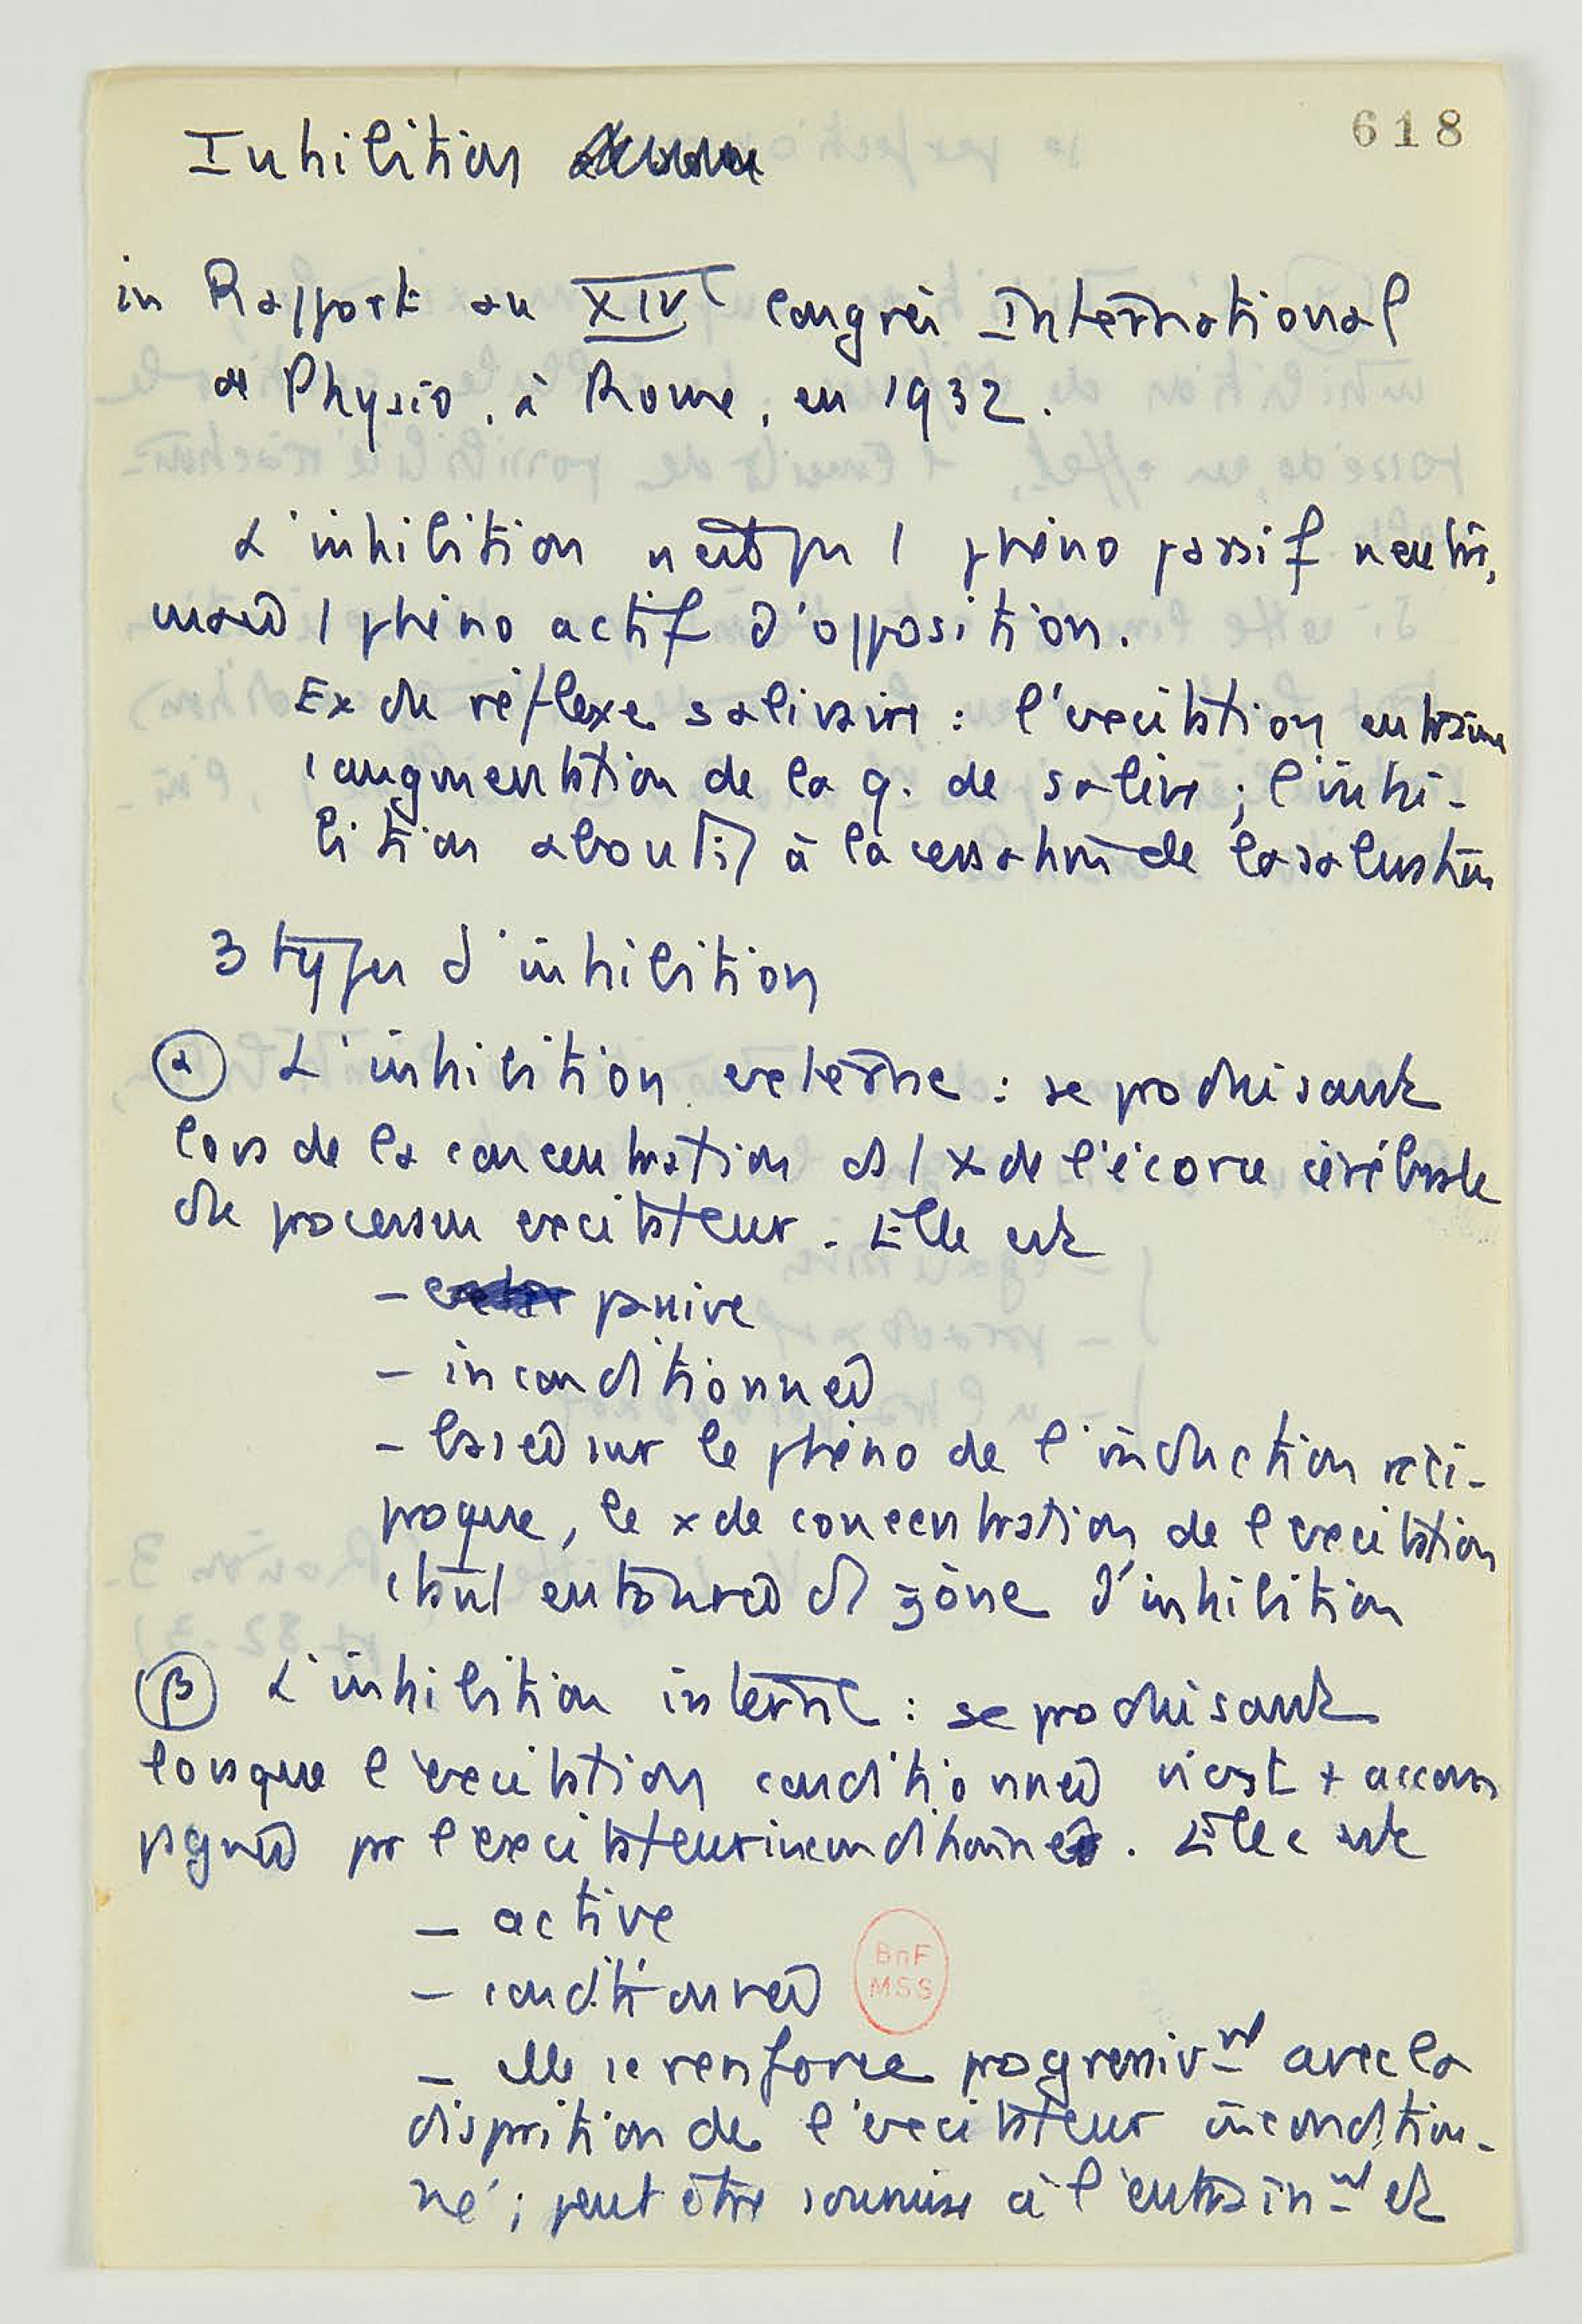 618
Inhibition
in Rapport au XIVe Congrès International
de Physio, à Rome, en 1932.
L'inhibition n'est pas 1 phéno passif neutre,
mais 1 phéno actif d'opposition.
Ex du réflexe salivaire : l'excitation entraîne
1 augmentation de la q. de salive ; l'inhi-
bition aboutit à la cessation de la salivation
3 types d'inhibition
α L'inhibition externe : se produisant
lors de la concentration ds 1 x de l'écorce cérébrale
du processus excitateur. Elle est
- passive
- inconditionnée
- basée sur le phéno de l'induction réci-
proque, le x de concentration de l'excitation
étant entourée d zône d'inhibition
β L'inhibition interne : se produisant
lorsque l'excitation conditionnée n'est + accom
pagnée par l'excitateur inconditionné. Elle est
- active
- conditionnée
BnF
MSS
- elle se renforce progressivmt avec la
disparition de l'excitateur incondition-
né ; peut être soumise à l'entraînmt et